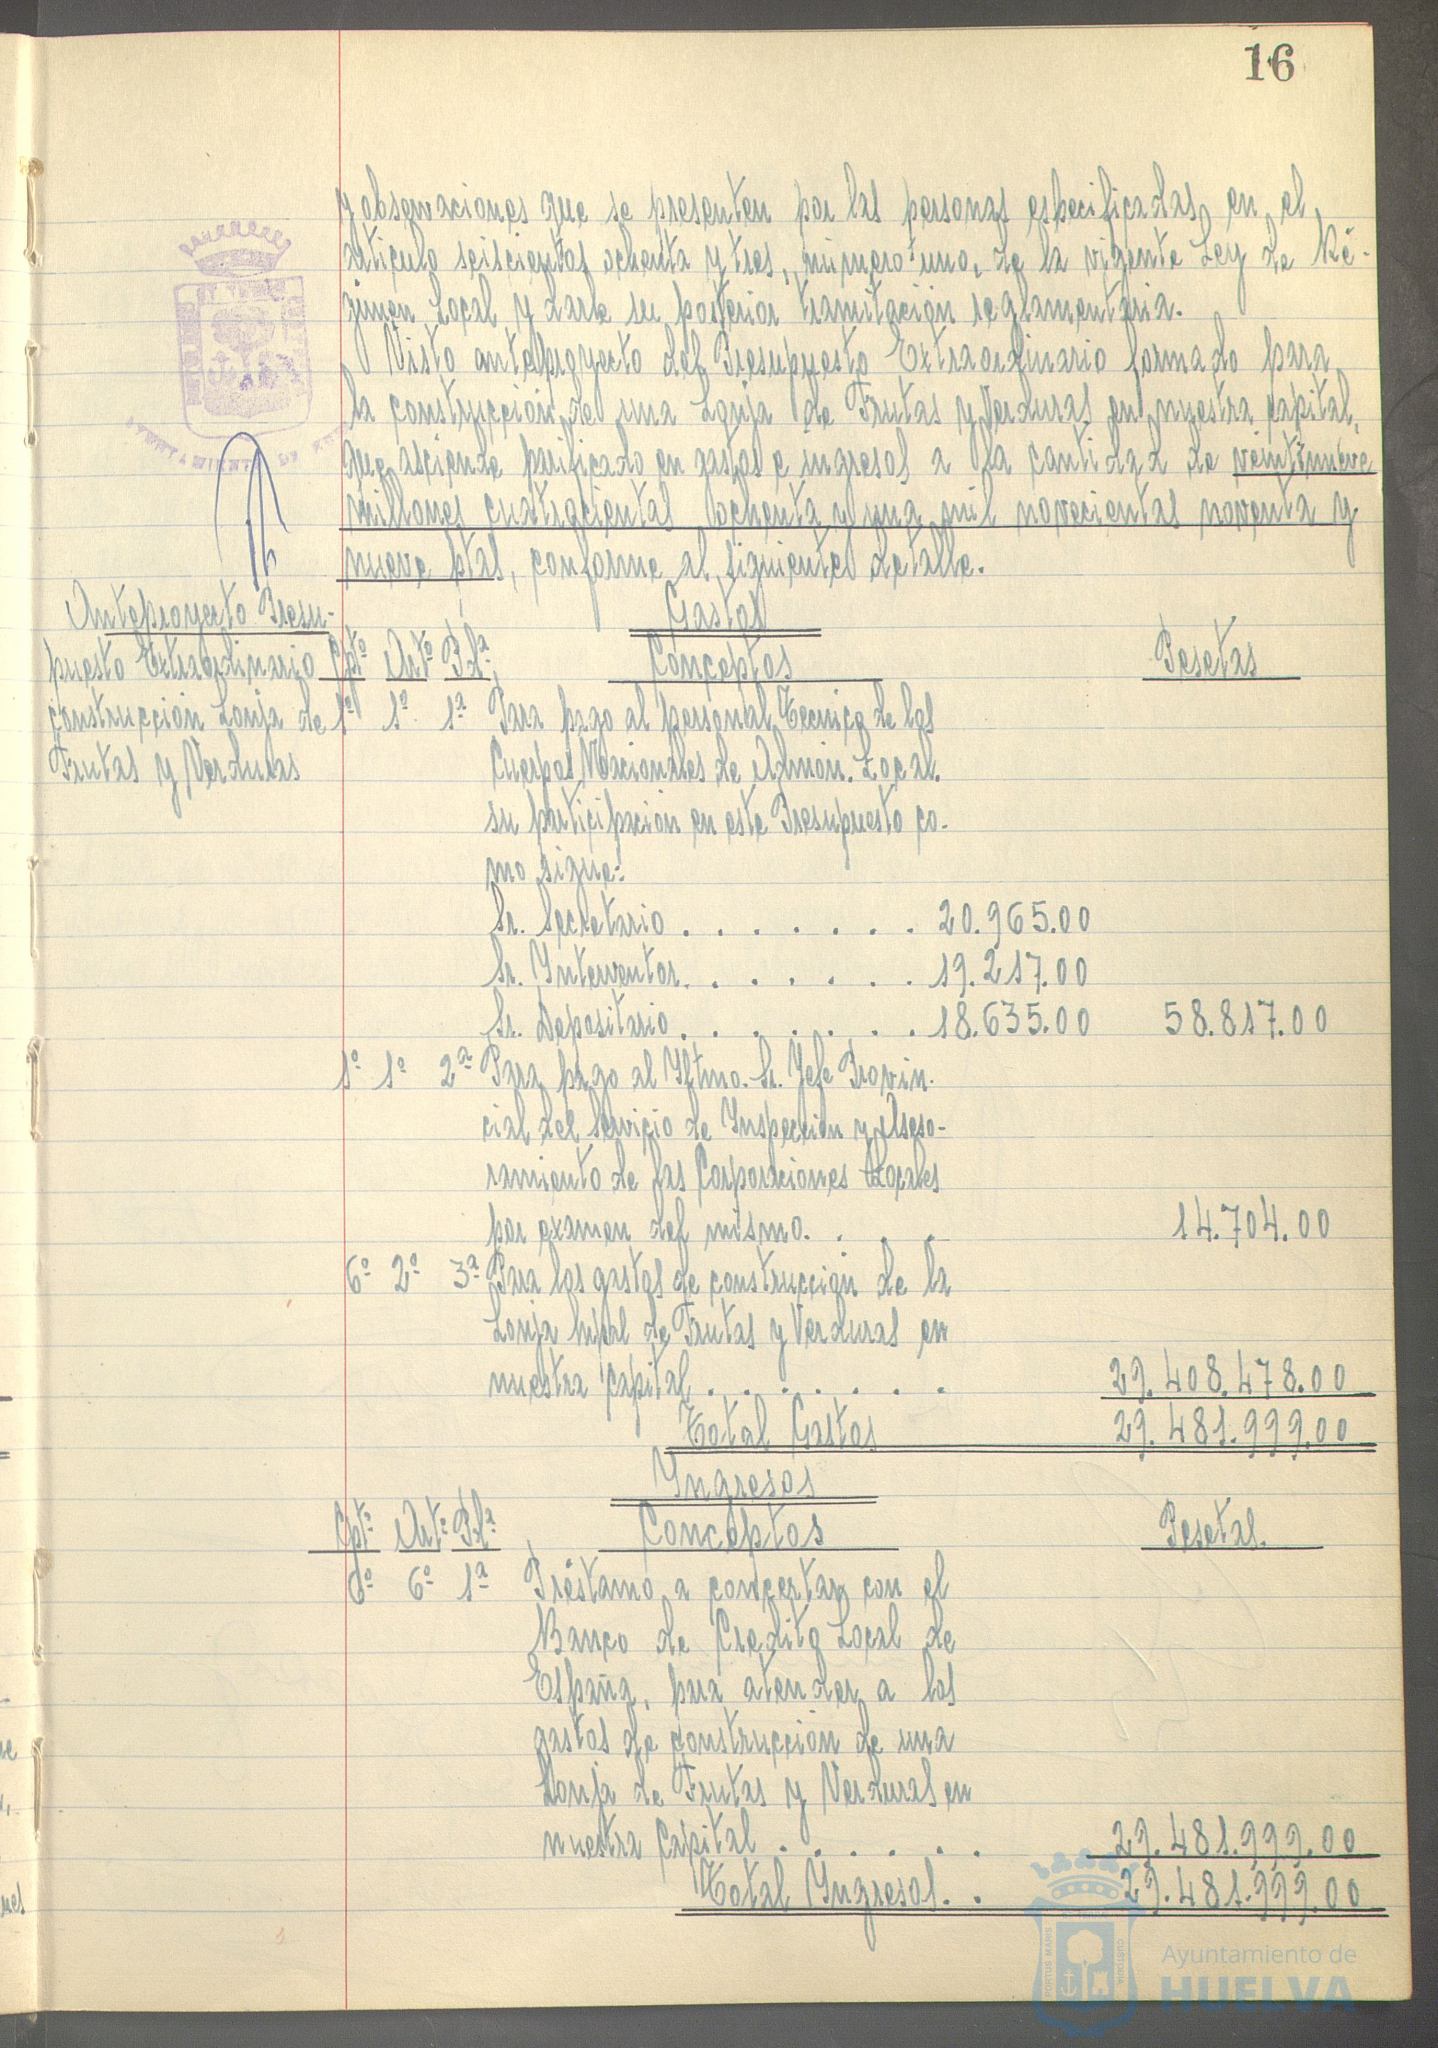 16
y observaciones que se presenten por las personas especificadas en el
artículo seiscientos ochenta y tres, número uno, de la vigente Ley de Ré-
gimen Local y darle su posterior tramitación reglamentaria.
Visto anteproyecto del Presupuesto Extraordinario formado para
la construcción de una Lonja de Frutas y Verduras en nuestra capital,
que asciende pacificado en gastos e ingresos a la cantidad de veintinueve
millones cuatrocientas ochenta y una mil novecientas noventa y
nueve ptas, conforme al siguiente detalle.
Anteproyecto Presu-
puesto Extraordinario
construcción Lonja de
Frutas y Verduras
Gastos
Cptº Artº Pdª Conceptos Pesetas
1º 1º 1ª Para pago al personal Técnico de los
Cuerpos Nacionales de Admón. Local.
su participación en este Presupuesto co-
mo sigue:
Sr. Secretario . . . . . . . 20.965.00
Sr. Interventor. . . . . . . 19.217.00
Sr. Depositario . . . . . . . 18.635.00 58.817.00
1º 1º 2ª Para pago al Iltmo. Sr. Jefe Provin-
cial del Servicio de Inspección y Aseso-
ramiento de las Corporaciones Locales
por examen del mismo. . . . 14.704.00
6º 2º 3ª Para los gastos de construcción de la
Lonja Mpal de Frutas y Verduras en
nuestra capital . . . . . . . 29.408.478.00
Total Gastos 29.481.999.00
Ingresos
Cptº Artº Pdª Conceptos Pesetas.
6º 6º 1ª Préstamo a concertar con el
Banco de Crédito Local de
España, para atender a los
gastos de construcción de una
Lonja de Frutas y Verduras en
nuestra capital . . . . . . 29.481.999.00
Total Ingresos. . 29.481.999.00
PORTUS MARIS
CUSTODIA
Ayuntamiento de
HUELVA